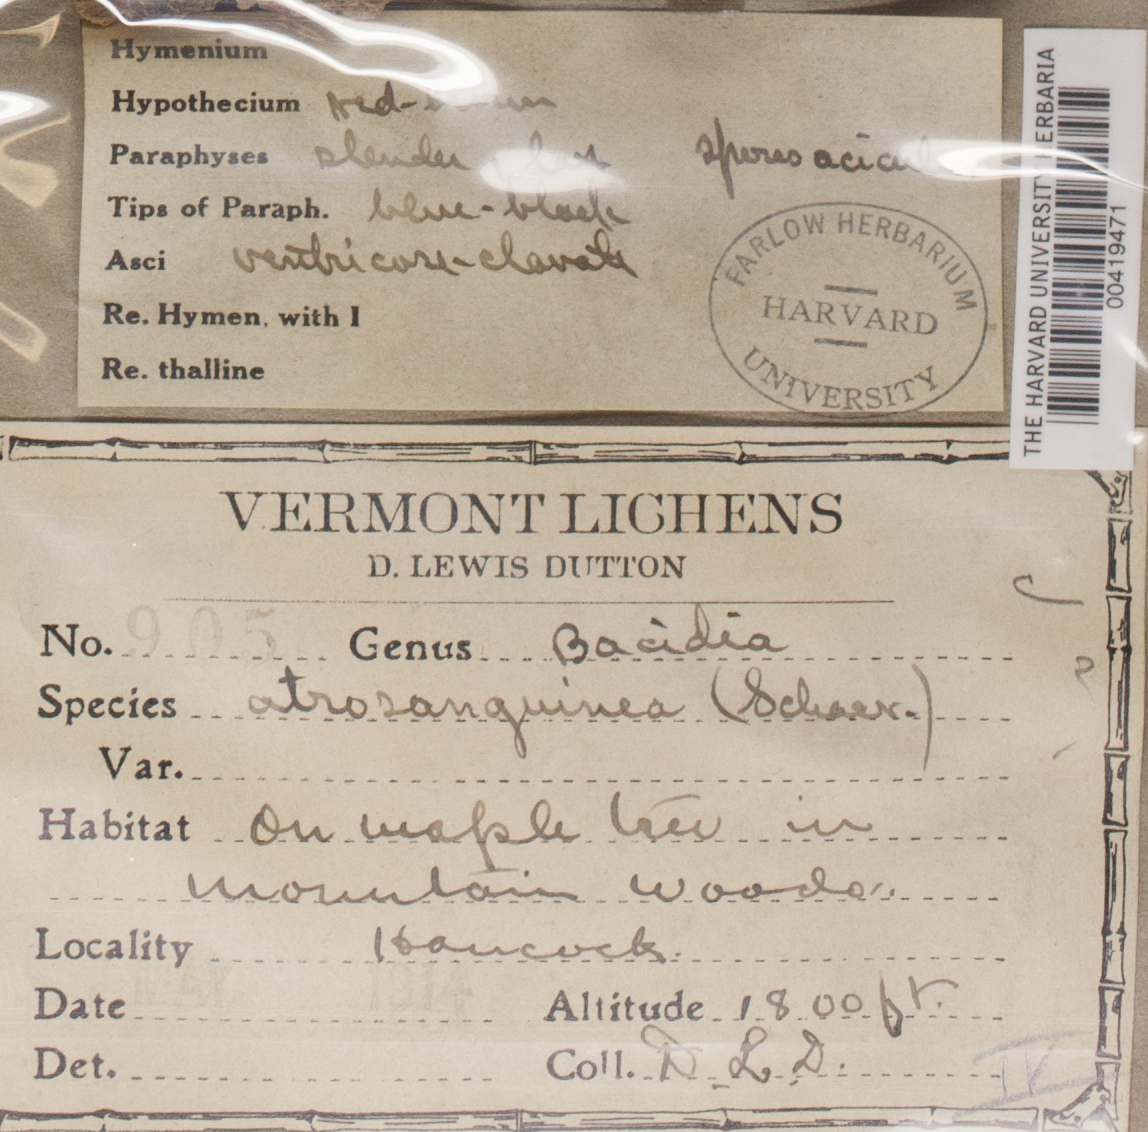 Hymenium
Hypothecium red-brown
Paraphyses slender spores acicul
Tips of Paraph. blue-black
Asci ventricose-clavate
Re. Hymen. with I
Re. thalline
FARLOW HERBARIUM
HARVARD
UNIVERSITY
THE HARVARD UNIVERSITY HERBARIA
00419471
VERMONT LICHENS
D. LEWIS DUTTON
No. 905 Genus Bacidia
Species atrosanguinea (Schaer.)
Var.
Habitat On maple tree in
mountain woods.
Locality Hancock.
Date MAY 1914 Altitude 1800 ft.
Det. Coll. D. L. D.
IV